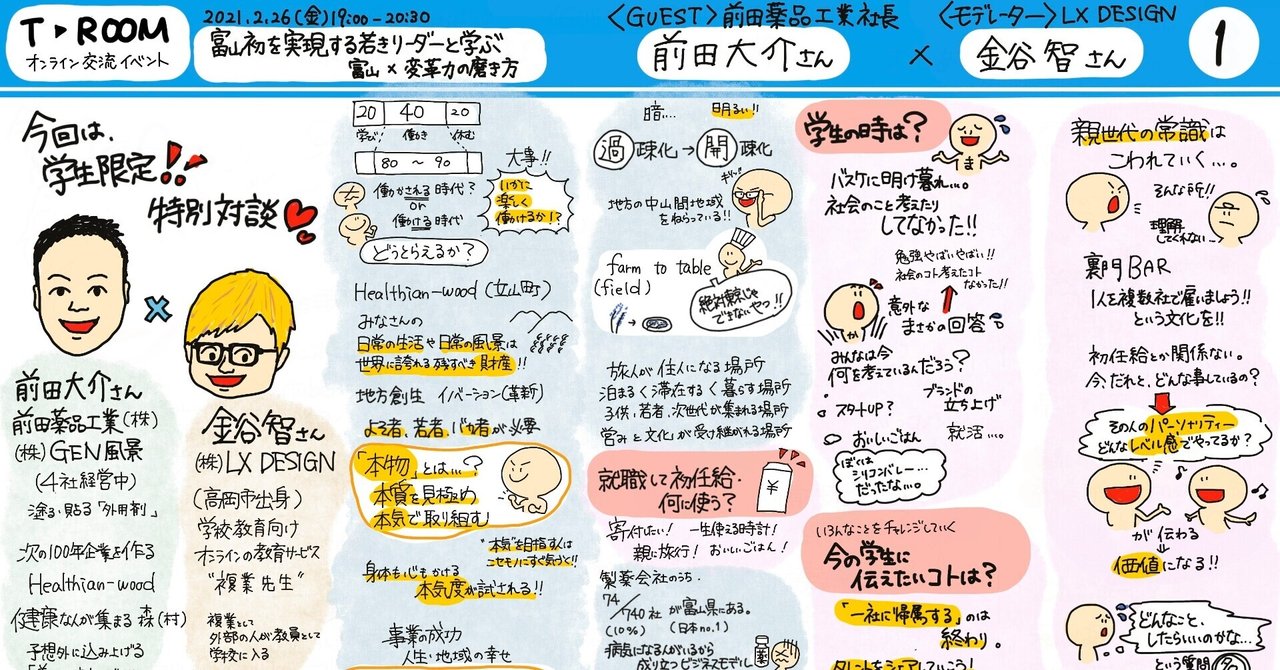 T▶ROOM
オンライン交流イベント
2021.2.26(金)19:00-20:30
富山初を実現する若きリーダーと学ぶ
富山×変革力の磨き方
〈GUEST〉前田薬品工業社長
前田大介さん
×
〈モデレーター〉LX DESIGN
金谷智さん
1
今回は、
学生限定!!
特別対談
×
前田大介さん
前田薬品工業(株)
(株)GEN風景
(4社経営中)
塗る・貼る「外用剤」
次の100年企業を作る
Healthian-wood
健康な人が集まる森(村)
予想外に込み上げる
金谷智さん
(株)LX DESIGN
(高岡市出身)
学校教育向け
オンラインの教育サービス
"複業先生"
複業として
外部の人が教員として
学校に入る
20 40 20
学ぶ 働き 休む
80 ~ 90
大事!!
働かされる時代?
or
働ける時代
いかに
楽しく
働けるか!?
どうとらえるか?
Healthian-wood(立山町)
みなさんの
日常の生活や日常の風景は
世界に誇れる残すべき財産!!
地方創生 イノベーション(革新)
よそ者、若者、バカ者が必要
「本物」とは…?
本質を見極め
本気で取り組む
"本気"を目指す人は
ニセモノにすぐ気づく!!
身体も心もかける
本気度が試される!!
事業の成功
人生・地域の幸せ
暗… 明るい!!
過疎化→開疎化
キリッ
地方の中山間地域
をねらっている!!
farm to table
(field)
絶対東京じゃ
できないやつ!!
旅人が住人になる場所
泊まる<滞在する<暮らす場所
子供、若者、次世代が集まれる場所
営みと文化が受け継がれる場所
就職して初任給・
何に使う?
¥
寄付したい! 一生使える時計!
親に旅行! おいしいごはん!
製薬会社のうち・
74/740社が富山県にある。
(10%) (日本no.1)
病気になる人がいるから
成り立つビジネスモデル
学生の時は?
ま
バスケに明け暮れ…。
社会のこと考えたり
してなかった!!
勉強やばいやばい!!
社会のコト考えたコト
なかった!!
か
意外な
まさかの回答
みんなは今
何を考えているんだろう?
スタートUP?
ブランドの
立ち上げ
おいしいごはん
就活…。
ぼくは
シリコンバレー…
だったない。
いろんなことをチャレンジしていく
今の学生に
伝えたいコトは?
「一社に帰属する」のは
終わり。
タレントをシェアしていこう!
親世代の常識は
こわれていく…。
そんな所!!
理解
してくれない…
裏門BAR
1人を複数社で雇いましょう!!
という文化を!!
初任給とか関係ない。
今、だれと、どんな事しているの?
その人のパーソナリティー
どんなレベル感でやってるか?
が伝わる
価値になる!!
どんなこと、
したらいいのかな…
という質問